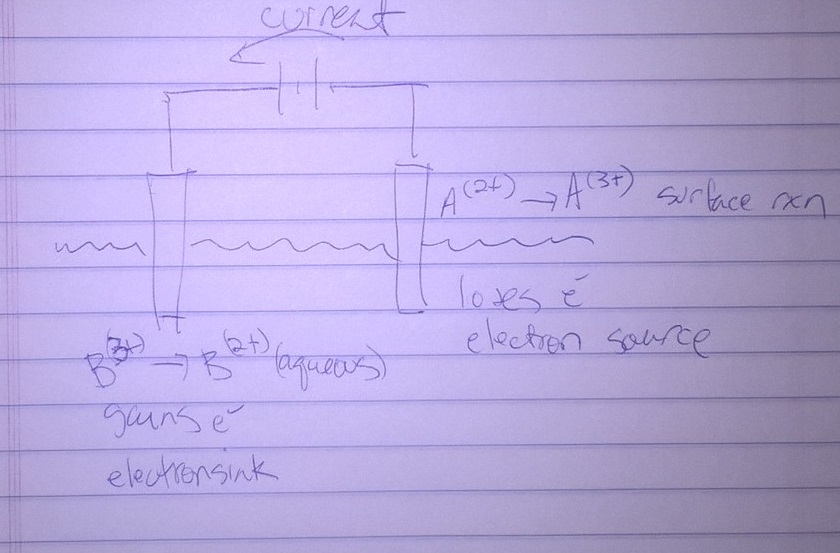 current
A(2+) → A(3+) surface rxn
loses e⁻
electron source
B(3+) → B(2+) (aqueous)
gains e⁻
electron sink